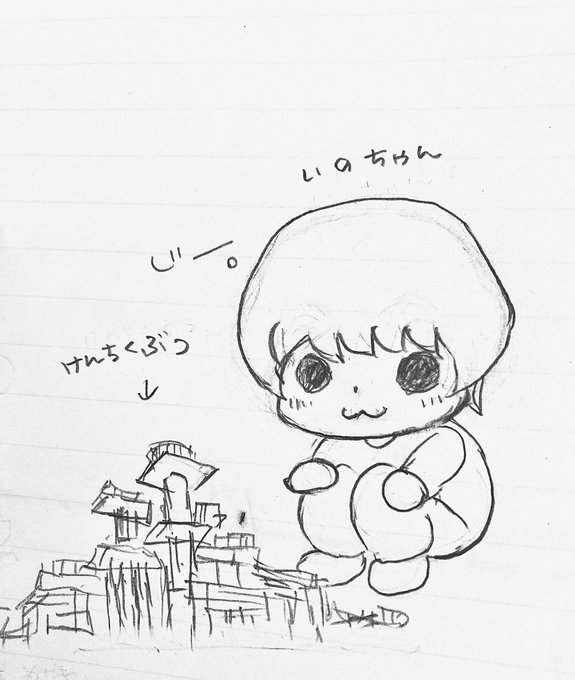 いのちゃん
じー。
けんちくぶつ